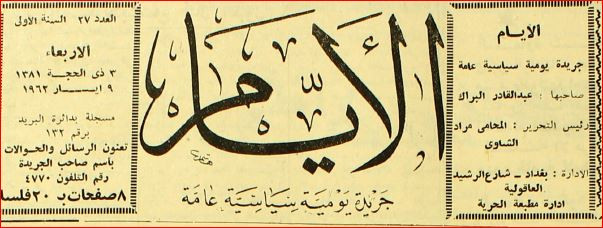 الأيام
جريدة يومية سياسية عامة
صاحبها : عبدالقادر البراك
رئيس التحرير : المحامي مراد
الشاوى
الادارة : بغداد ـ شارع الرشيد
العاقولية
ادارة مطبعة الحرية
الأيام
جريدة يومية سياسية عامة
العدد ٢٧ السنة الاولى
الاربعاء
٣ ذى الحجة ١٣٨١
٩ ايـــار ١٩٦٢
مسجلة بدائرة البريد
برقم ١٣٢
تعنون الرسائل والحوالات
بأسم صاحب الجريدة
رقم التلفون ٤٧٧٠
٨ صفحات بـ ٢٠ فلسا